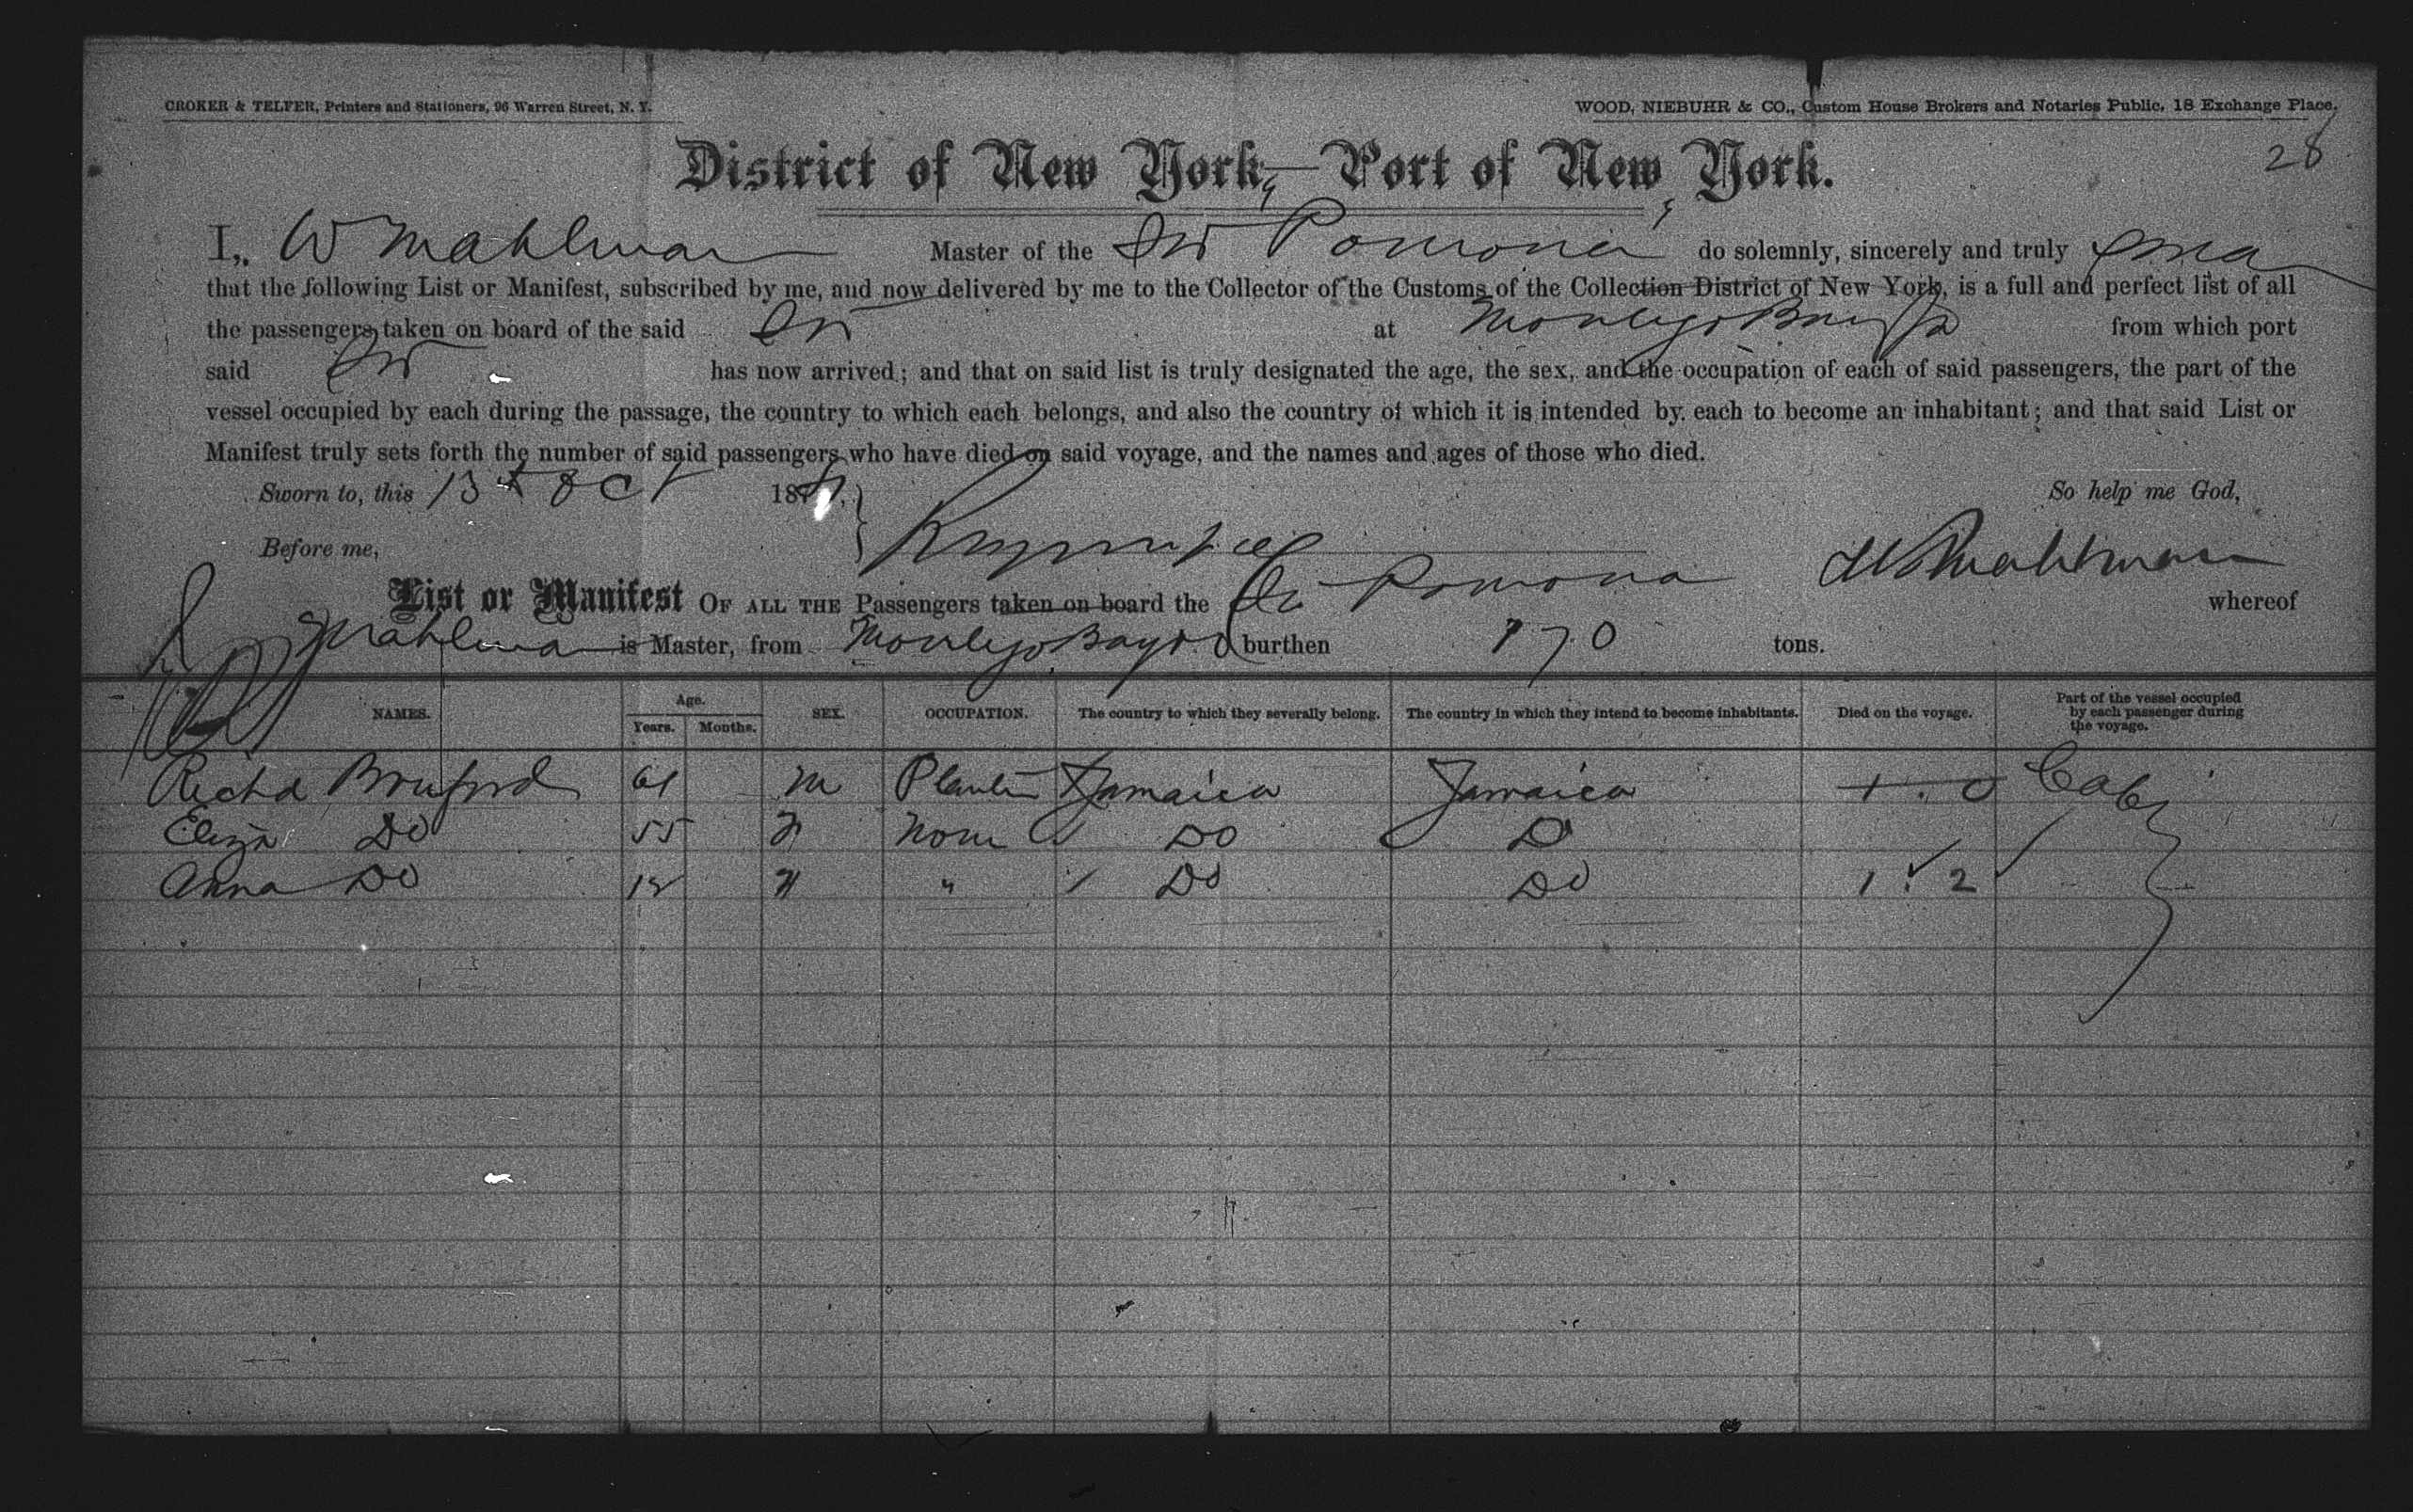 CROKER & TELFER, Printers and Stationers, 96 Warren Street, N. Y.
WOOD, NIEBUHR & CO., Custom House Brokers and Notaries Public, 18 Exchange Place.
28
District of New York,—Port of New York.
I, W Mahlman Master of the Pomona do solemnly, sincerely and truly
that the following List or Manifest, subscribed by me, and now delivered by me to the Collector of the Customs of the Collection District of New York, is a full and perfect list of all
the passengers taken on board of the said at Montego Bay Ja from which port
said has now arrived; and that on said list is truly designated the age, the sex, and the occupation of each of said passengers, the part of the
vessel occupied by each during the passage, the country to which each belongs, and also the country of which it is intended by each to become an inhabitant; and that said List or
Manifest truly sets forth the number of said passengers who have died on said voyage, and the names and ages of those who died.
Sworn to, this 13th Oct 18 So help me God,
Before me, W Mahlman
List or Manifest OF ALL THE Passengers taken on board the Pomona whereof
Mahlman is Master, from Montego Bay burthen 170 tons.
NAMES. Age. Years. Months. SEX. OCCUPATION. The country to which they severally belong. The country in which they intend to become inhabitants. Died on the voyage. Part of the vessel occupied by each passenger during the voyage.
Richd 61 M Planter Jamaica Jamaica 1 . 0 Cab
Eliza Do 55 F None Do Do
Anna Do F " Do Do 1 . 2